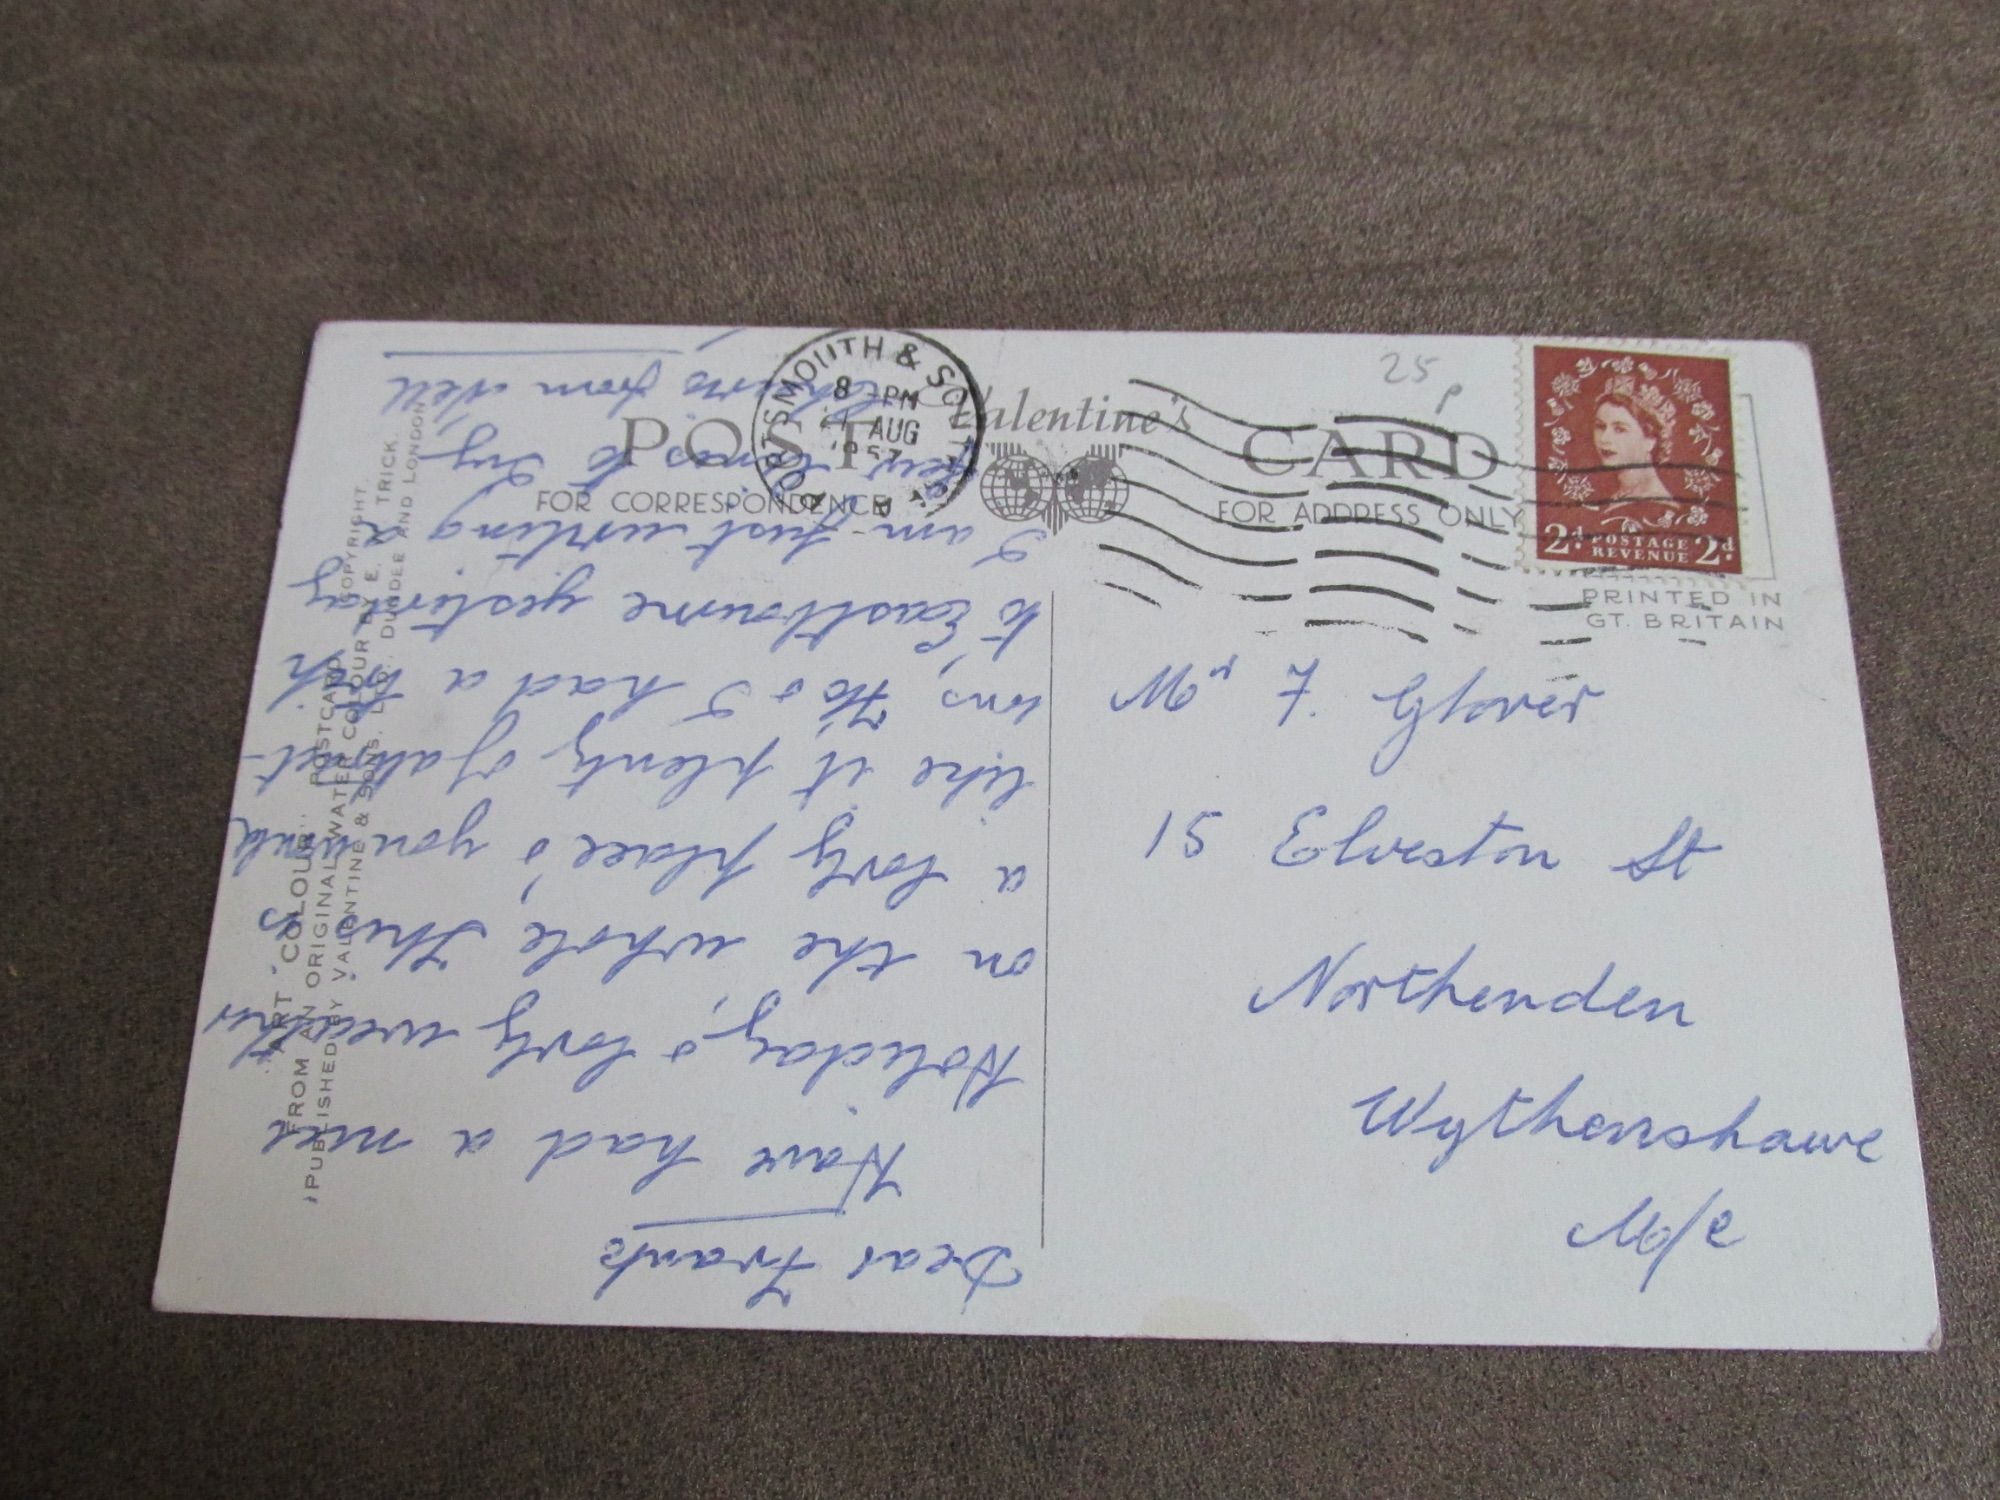 POST CARD
Valentine's
FOR CORRESPONDENCE
FOR ADDRESS ONLY
PORTSMOUTH &
8 PM
AUG
1957
25 p
2d POSTAGE 2d
REVENUE
PRINTED IN
GT. BRITAIN
Mr F. Glover
15 Elveston St
Northenden
Wythenshawe
M/c
Dear Frank
Have had a nice
Holiday, & lovly weather
on the whole. This is
a lovly place & you would
like it plenty of attract-
ions, Flo & I had a trip
to Eastbourne yesterday
I am just writing a
few lines to Ivy
from Nell
"ART COLOUR" POSTCARD
FROM AN ORIGINAL WATER COLOUR BY E. W. TRICK.
PUBLISHED BY VALENTINE & SONS, LTD., DUNDEE AND LONDON
COPYRIGHT.